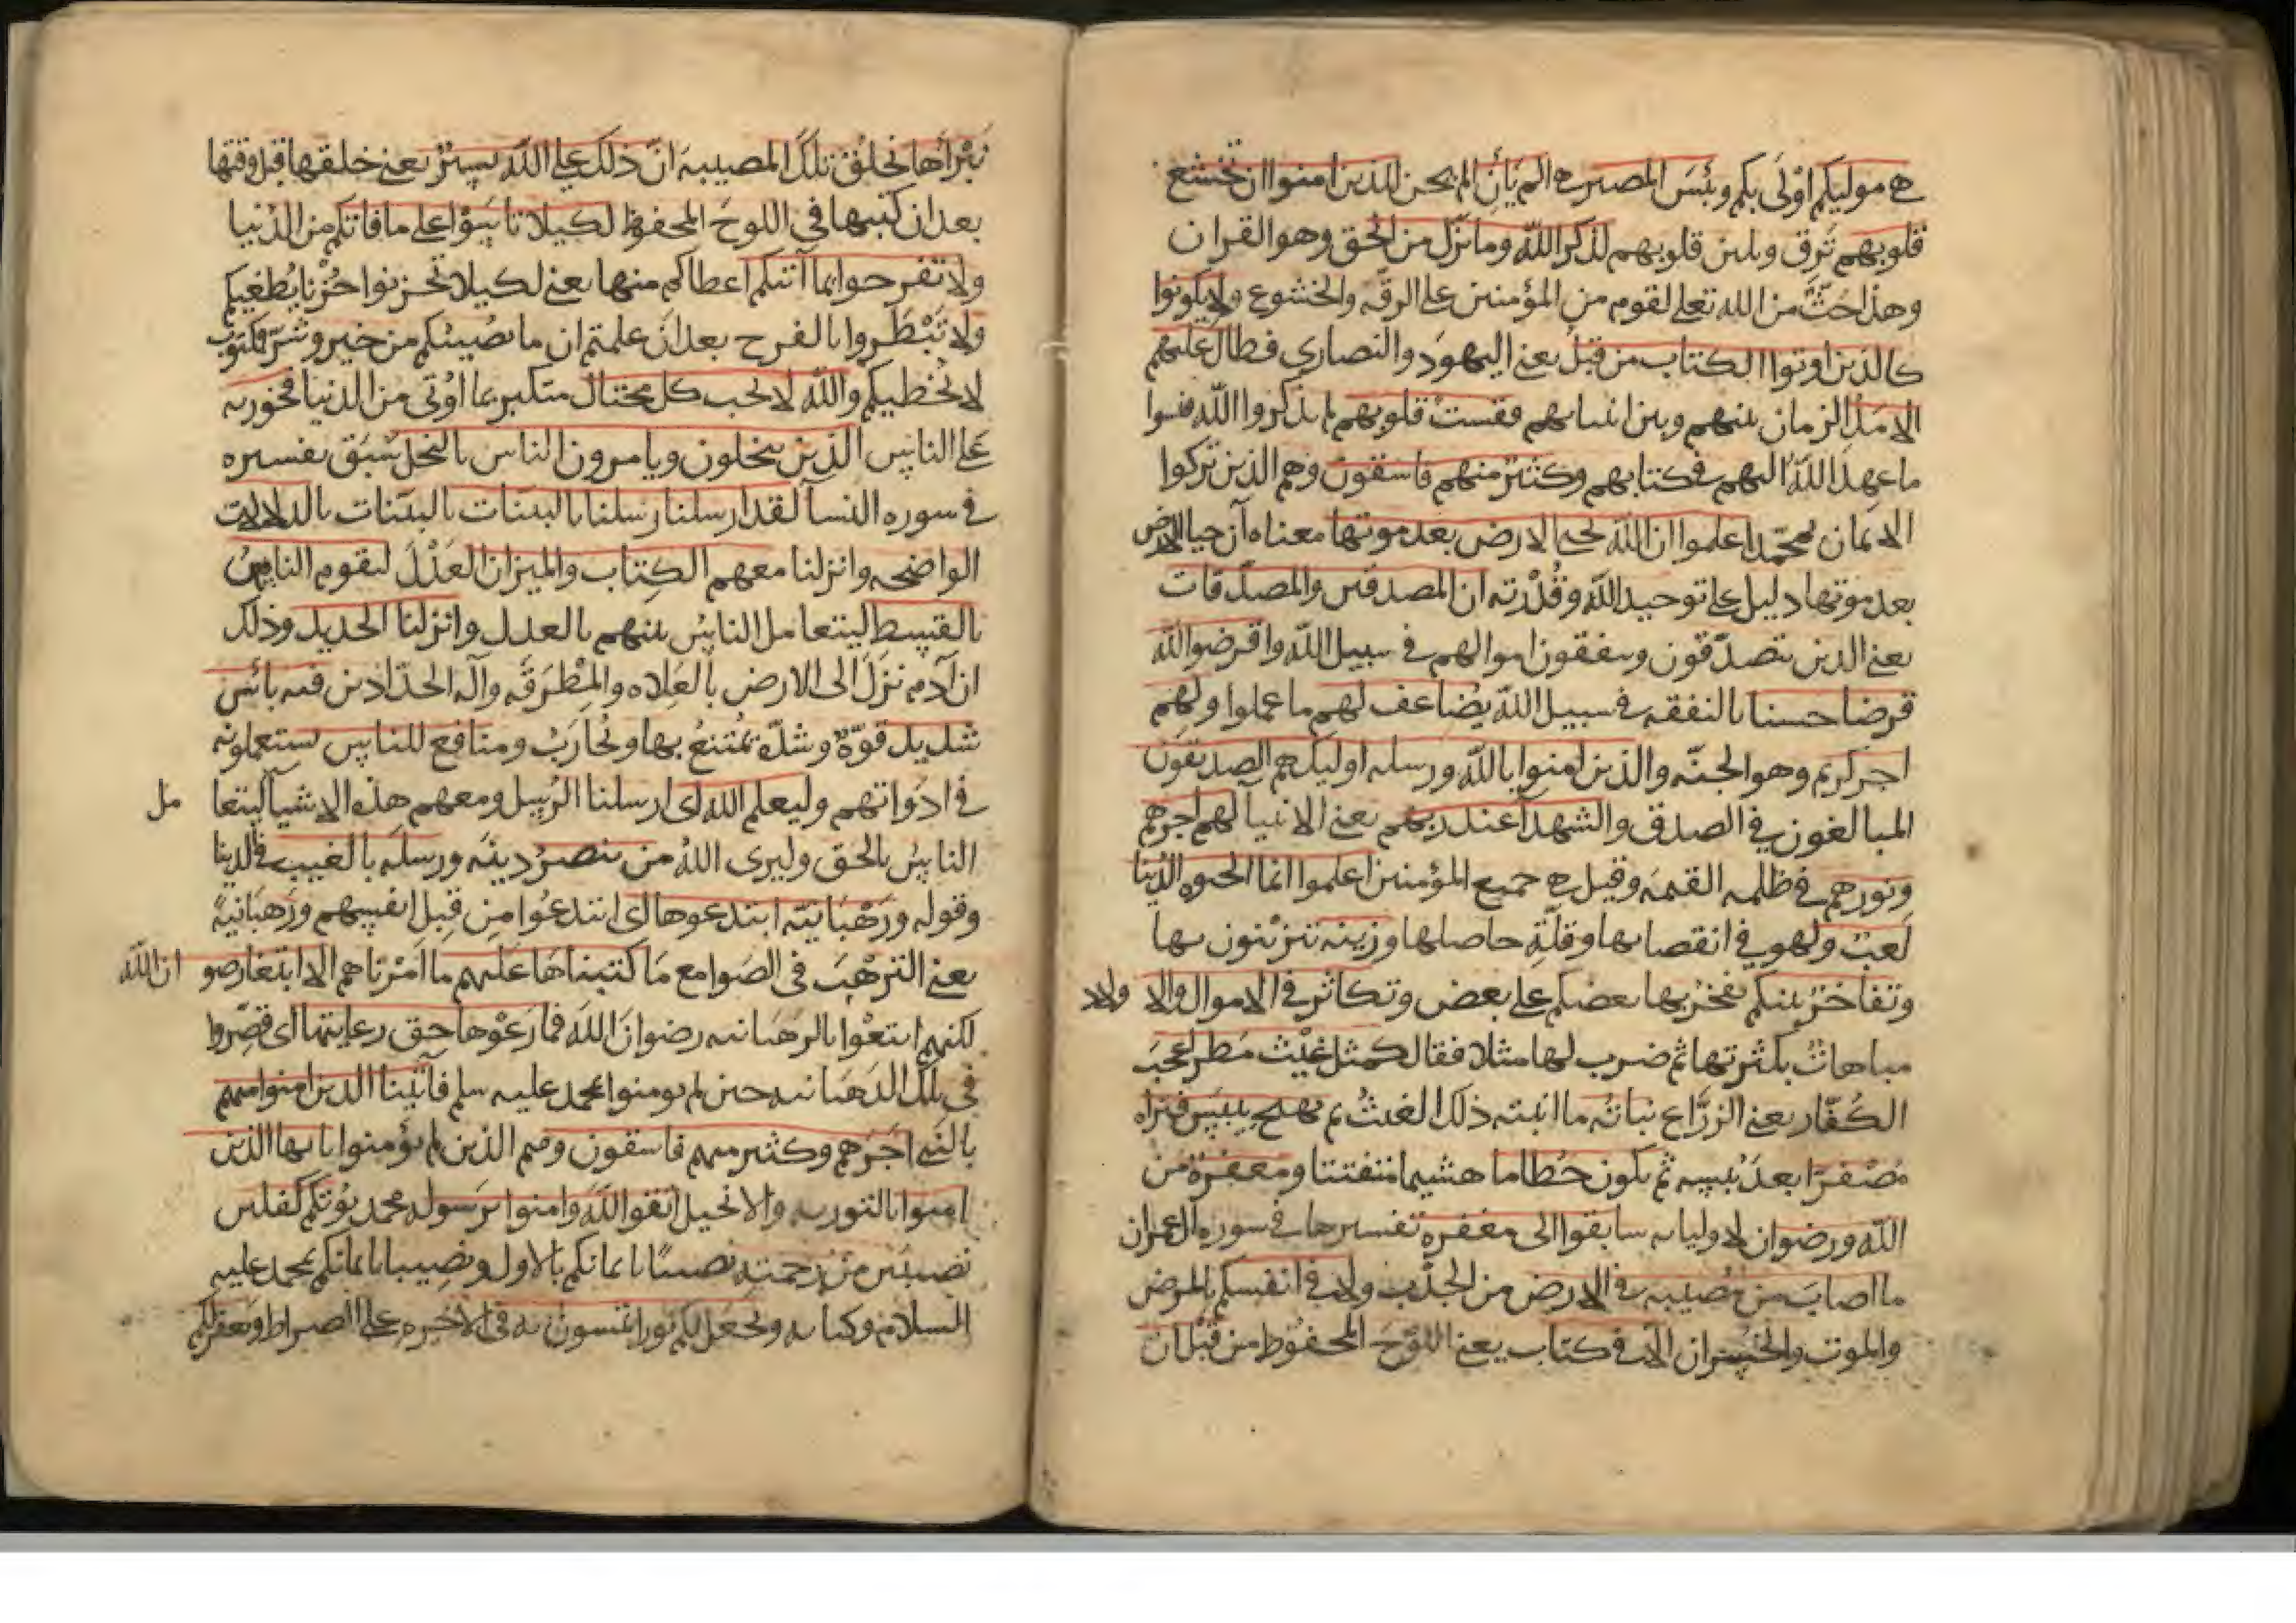 هي موليكم اوْلَى بكم وبئسَ المصير هي الم يَأنِ الم يحن للذين امنوا ان تخشع
قلوبهم تَرِق وتلين قلوبهم لذكر الله وما نزّل من الحق وهو القران
وهذا حَثٌّ من الله تعلى لقوم من المؤمنين على الرقّه والخشوع ولا يكونوا
كالذين اوتوا الكتاب من قبلُ يعني اليهودَ والنصارى فطال عليهم
الامَدُ الزمان بينهم وبين انبيايهم فقستْ قلوبهم لم يذكروا الله فنسوا
ما عهد اللهُ اليهم في كتابهم وكثيرٌ منهم فاسقون وهم الذين تركوا
الايمان بمحمّد اعلموا ان الله يحيي الارض بعد موتها معناه آن حيا الارض
بعد موتها دليل على توحيد الله وقُدْرته ان المصدقين والمصدّقات
يعني الذين يتصدّقون وينفقون اموالهم في سبيل الله واقرضوا الله
قرضا حسنا بالنفقه في سبيل الله يُضاعف لهم ما عملوا ولهم
اجر كريم وهو الجنّه والذين امنوا بالله ورسله اوليك هم الصديقون
المبالغون في الصدق والشهدآ عند ربهم يعني الانبيآ لهم اجرهم
ونورهم في ظلمه القيمه وقيل هي جميع المؤمنين اعلموا انما الحيوه الدنيا
لعبٌ ولهو في انقضايها وقلّةِ حاصلها وزينه تتزيّنون بها
وتفاخرٌ بينكم يفخرُ بها بعضكم على بعض وتكاثر في الاموال والا ولاد
مباهاتٌ بكثرتها ثم ضرب لها مثلا فقال كمثل غَيْث مَطرٍ اعجبَ
الكُفّار يعني الزرَّاع نباتُه ما انبته ذلك الغيثُ ثم يهيج يَيْبَس فتراه
مُصْفرّا بعدَ يُبسِه ثم يكون حُطاما هشيما متفتتا ومغفرةٌ من
الله ورضوان لاوليايه سابقوا الى مغفره تفسيرها في سوره آل عمران
ما اصابَ من مُصيبه في الارض من الجدْب ولا في انفسكم بالمرض
والموت والخسران الّا في كتاب يعني اللوْحَ المحفوظ من قبْل ان
نَبْرَأها نخلُقَ تلك المصيبهَ انّ ذلك على الله يسيرٌ يعني خلقها قبل وقتها
بعد ان كتبها في اللوحَ المحفوظ لكيلا تايَسُوْا على ما فاتكم من الدُنيا
ولا تفرحوا بما آتيكم اعطاكم منها يعني لكيلا تحزنوا حُزْنا يُطغيكم
ولا تَبْطَروا بالفرح بعد انْ علمتم ان ما يُصيبُكم من خير وشرّ فمكتوب
لا يُخطيكم والله لا يحب كل مختال متكبر بما اوُتى من الدنيا فخور به
على الناسِ الذين يبخلون ويامرون الناس بالبخل سَبَق تفسيره
في سوره النسآ لقد ارسلنا رسلنا بالبينات بالبيّنات بالدلالات
الواضحه وانزلنا معهم الكِتاب والميزان العَدْلَ ليقوم الناسُ
بالقسط ليتعامل الناسُ بينهم بالعدل وانزلنا الحديد وذلك
ان آدم نَزَلَ الى الارض بالعَلاه والمِطْرَقَه وآله الحدّادين فيه بائس
شديد قوّةٌ وشدّه يُمْتنعُ بها ويُحارَبُ ومنافع للناسِ يستعملونه
في ادَواتهم وليعلم الله اى ارسلنا الرُسل ومعهم هذه الاشيآ ليتعا مل
الناسُ بالحق وليرى اللهُ من ينصرُ دينَه ورسلَه بالغيب في الدينا
وقوله ورَهْبَانيّه ابتدعوها اى ابتدعُوا من قِبل انفسهم ورَهبَانيةً
يعني الترهّبَ في الصَوامع مَا كتبناهَا عَليهم ما اَمرْناهم الا ابتغا رضو ان الله
لكنهم ابتغُوا بالرهَبانيه رضوانَ الله فما رعَوْها حق رعايتها اى قصّروا
في تلكَ الرهَبانيه حين لم يومنوا بمحمد عليه سلم فآتَينا الذين امنوا منهم
بالنبي اجَرهم وكثير منهم فاسقون وهم الذين لم يؤمنوا يا يها الذين
امنوا بالتوريه والانجيل اتقوا اللّهَ وامنوا برسوله محمد يُوتكم كفلين
نصيبَين من رحمته نصيبًا بايمانكم بالاول ونصيبا بايمانكم بمحمد عليه
السلام وكتابه ويجعل لكم نورا تمشون به في الاخيره على الصراط ويغفر لكم